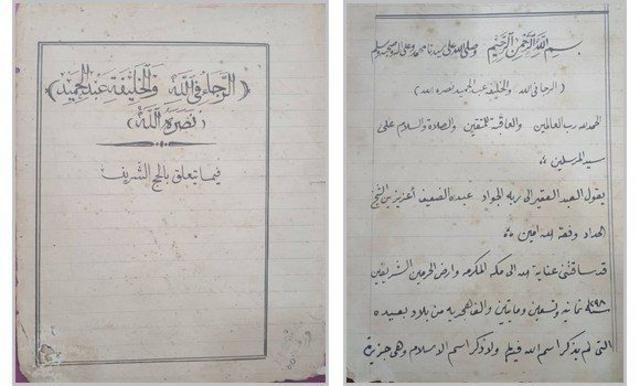 (الرجاء في الله والخليفة عبد الحميد)
(نصره الله)
فيما يتعلق بالحج الشريف
بسم الله الرحمن الرحيم وصلى الله على سيدنا محمد وعلى اله وصحبه وسلم
(الرجا في الله والخليفه عبد الحميد نصره الله)
الحمد لله رب العالمين والعاقبة للمتقين والصلاة والسلام على
سيد المرسلين
يقول العبد الفقير الى ربه الجواد عبيده الضعيف أعزيز بن الشيخ
الحداد وفقه الله امين
قد ساقتني عناية الله الى مكه المكرمه وارض الحرمين الشريفين
سنة ١٢٩٨ ثمانيه وتسعين وماتين والف هجريه من بلاد بعيده
التي لم يذكر اسم الله فيها ولا ذكر اسم الاسلام وهي جزيرة